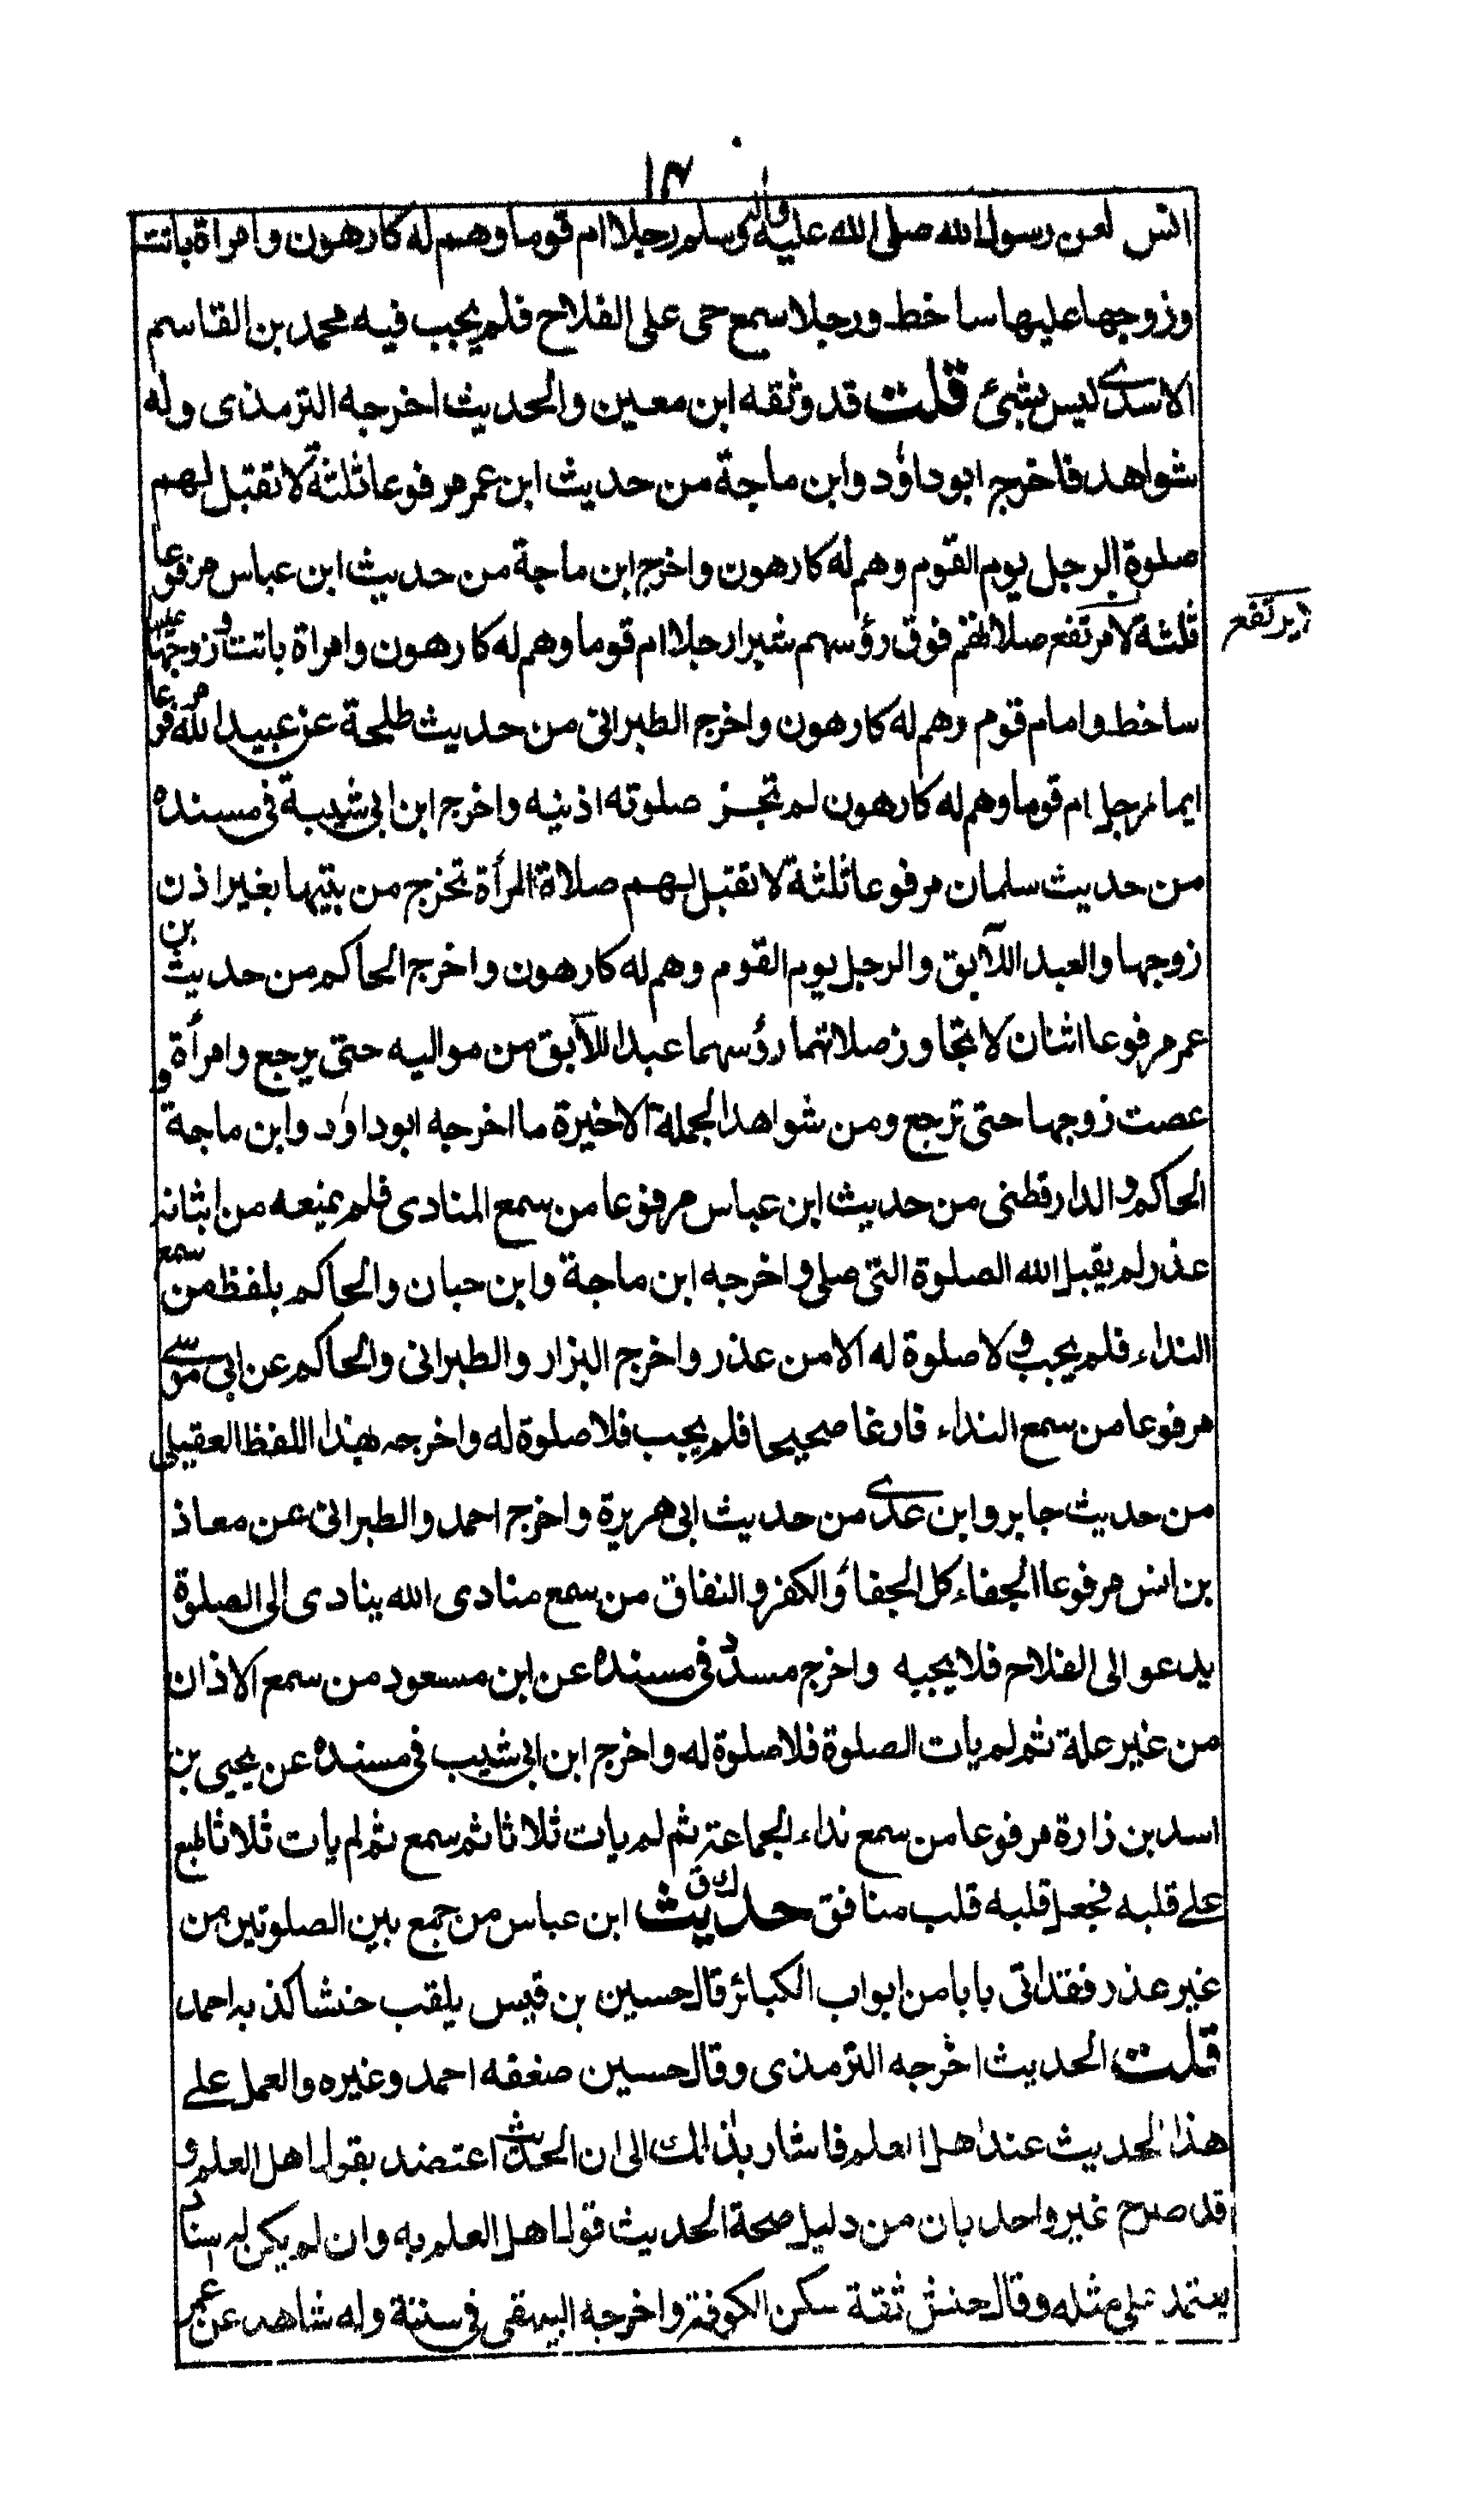 ١٢
انس لعن رسول الله صلى الله عليه واله وسلم رجلا ام قوما وهم له كارهون وامراة باتت
وزوجها عليها ساخط ورجلا سمع حى على الفلاح فلم يجب فيه محمد بن القاسم
الاسدى ليس بشئ قلت قد وثقه ابن معين والحديث اخرجه الترمذى وله
شواهد فاخرج ابوداؤد وابن ماجة من حديث ابن عمر مرفوعا ثلثة لا تقبل لهم
صلوة الرجل يوم القوم وهم له كارهون واخرج ابن ماجة من حديث ابن عباس مرفوعا
ثلثة لا مرتفع صلاتهم فوق رؤسهم شبرا رجلا ام قوما وهم له كارهون وامراة باتت وزوجها عليها
يرتفع
ساخط وامام قوم وهم له كارهون واخرج الطبرانى من حديث طلحة عن عبيد الله مرفوعا
ايما رجل ام قوما وهم له كارهون لم تجز صلوته اذنيه واخرج ابن ابى شيبة فى مسنده
من حديث سلمان مرفوعا ثلثة لا تقبل لهم صلاة المرأة تخرج من بيتها بغير اذن
زوجها والعبد اللآبق والرجل يوم القوم وهم له كارهون واخرج الحاكم من حديث بن
عمر مرفوعا اثنان لا تجاوز صلاتهما رؤسهما عبد اللآبق من مواليه حتى يرجع وامرأة
عصت زوجها حتى ترجع ومن شواهد الجملة الاخيرة ما اخرجه ابوداؤد وابن ماجة و
الحاكم والدارقطنى من حديث ابن عباس مرفوعا من سمع المنادى فلم يمنعه من اتيانه
عذر لم يقبل الله الصلوة التى صلى واخرجه ابن ماجة وابن حبان والحاكم بلفظ من سمع
النداء فلم يجب فلا صلوة له الا من عذر واخرج البزار والطبرانى والحاكم عن ابى موسى
مرفوعا من سمع النداء فارغا صحيحا فلم يجب فلا صلوة له واخرجه بهذا اللفظ العقيلى
من حديث جابر وابن عدى من حديث ابى هريرة واخرج احمد والطبرانى عن معاذ
بن انس مرفوعا الجفاء كل الجفاء والكفر والنفاق من سمع منادى الله ينادى الى الصلوة
يدعو الى الفلاح فلا يجيبه واخرج مسدد فى مسنده عن ابن مسعود من سمع الاذان
من غير علة ثم لم يات الصلوة فلا صلوة له واخرج ابن ابى شيب فى مسنده عن يحيى بن
اسد بن زارة مرفوعا من سمع نداء الجماعة ثم لم يات ثلاثا ثم سمع ثم لم يات ثلاثا طبع
على قلبه فجعل قلبه قلب منافق حديث ك ق ابن عباس من جمع بين الصلوتين من
غير عذر فقد اتى بابا من ابواب الكبائر قال حسين بن قيس يلقب حنشا كذبه احمد
قلت الحديث اخرجه الترمذى وقال حسين ضعفه احمد وغيره والعمل على
هذا الحديث عند اهل العلم فاشار بذالك الى ان الحديث اعتضد بقول اهل العلم و
قد صرح غير واحد بان من دليل صحة الحديث قول اهل العلم به وان لم يكن له اسناد
يعتمد على مثله وقال حنش ثقة سكن الكوفة واخرجه البيهقى فى سننة وله شاهد عن عمر